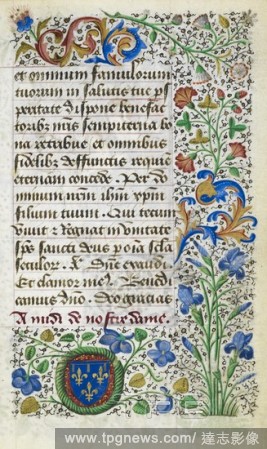 et omnium famulorum
tuorum in salutis tue pros
peritate dispone benefac
toribz nris sempiterna bo
na retribue et omnibus
fidelibz deffunctis requie
eternam concede. Per do
minum nrm ihm xpm
filium tuum. Qui tecum
viuit et regnat in vnitate
sps sancti deus
seculor. Dne exaudi.
Et clamor me. Benedi
camus dno. Deo gracias
A midi de nostre dame.
www.tpgnews.com/ 達志影像